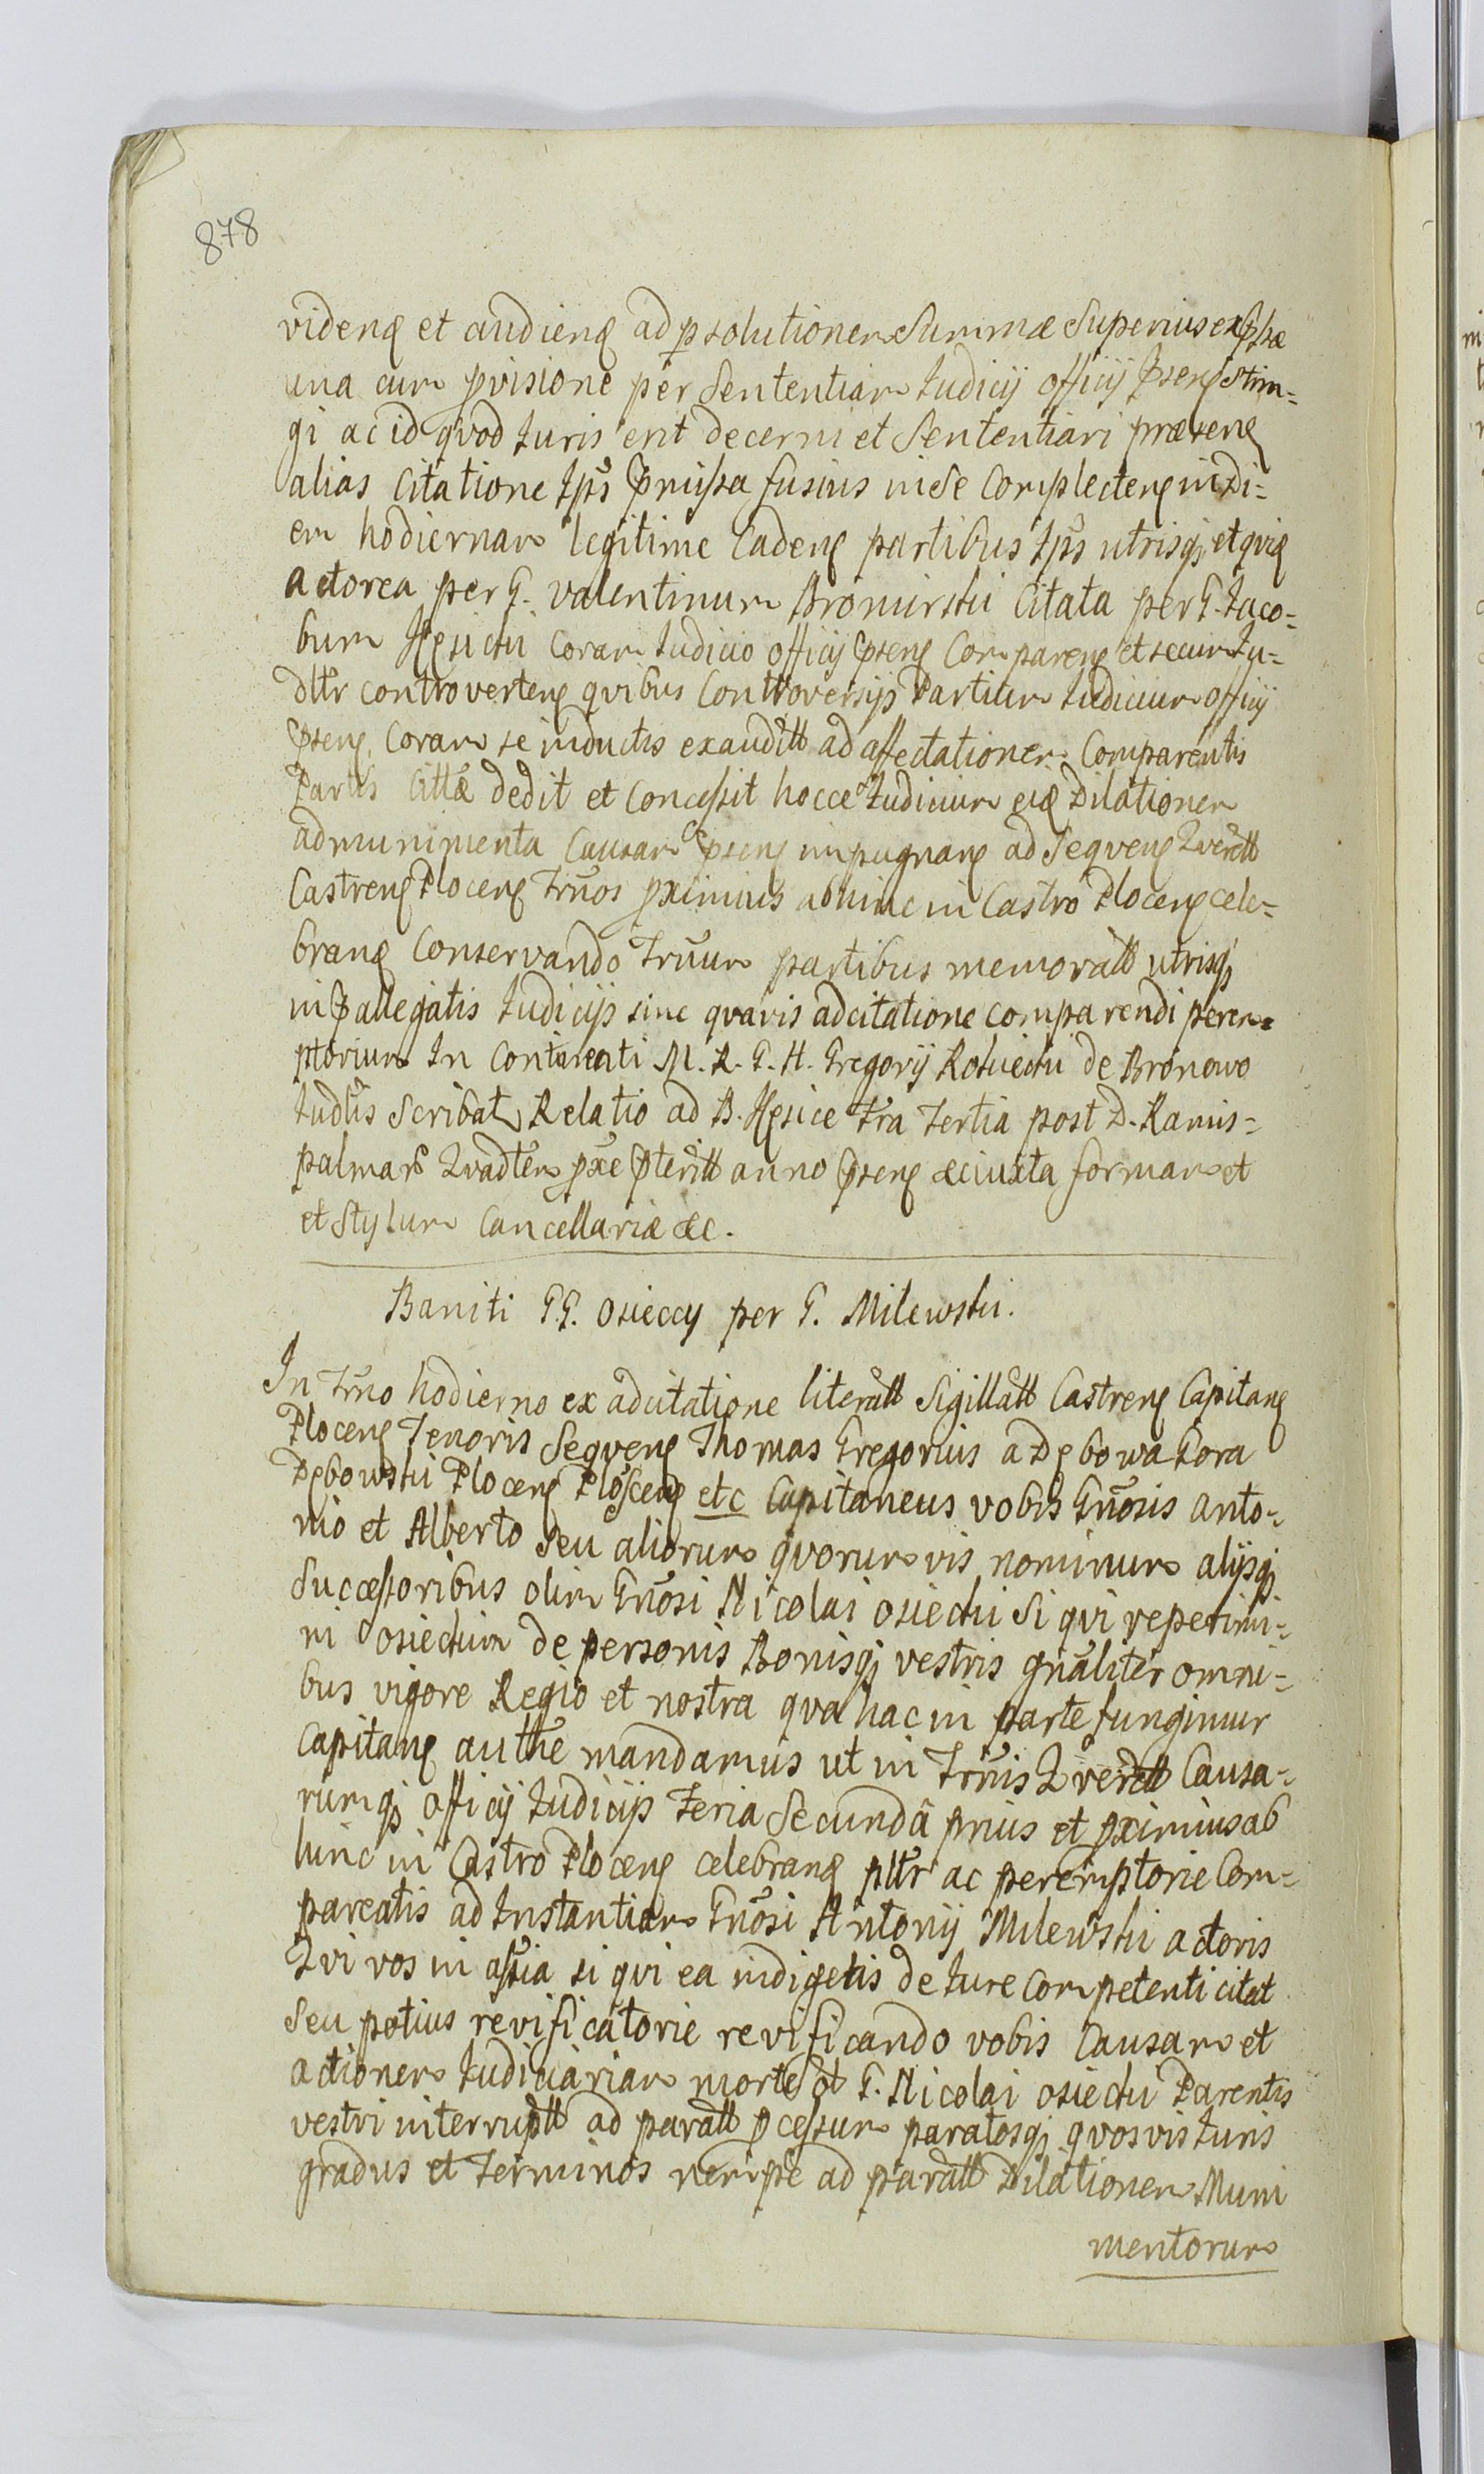 878
videnę et audienę ad psolutionem Summæ Superius
una cum pvisione per Sententiam Judicij officij pnsenę Stim=
gi ac id qvod Juris erit decerni et Sententiari præsenę
alias Citatione Ips pmissa fusius in se Complectenę in Di=
em hodiernam legitime Cadenę partibus Ips utrisqȝ et qvię
actorea per G. Valentinum Bromirski Citata per G. Jaco=
bum Coram Judicio officij psenę Comparenę et secum Ju=
dltr controvertenę qvibus Controversijs Partium Judicium officij
psenę Coram se inductis exauditt ad affectationem Comparentis
Partis Cittæ dedit et Concessit hocce Judicium eię Dilationem
ad munimenta Causam psenę impugnanę ad Seqvenę Qverell
Castrenę Plocenę Trnos pximius abhinc in Castro Plocenę cele=
branę Conservando Trnum partibus memoratt utrisqȝ
in pallegatis Judicijs sine qvavis adcitatione comparendi perem=
ptorium In Continenti M. R. G. H. Gregorij Rościecki de Bronowo
Judlis Scribat Relatio ad B. Hęsice Fra Tertia post D. Ramis=
palmar Qvadten pxe pteritt anno psenę &c iuxta formam et
et Stylum Cancellariæ &c.
Baniti G.G. Osieccy per G. Milewski.
In Trno hodierno ex adcitatione literatt Sigillatt Castrenę Capitanę
Plocenę Tenoris Seqvenę Thomas Gregorius a Dębowa Gora
Dębowski Plocenę Ploscenę etc Capitaneus vobis Gnosis Anto=
nio et Alberto Seu aliorum qvorumvis nominum alijsqȝ
Successoribus olim Gnosi Nicolai Osiecki Si qvi reperimi=
ni Osieckim de personis Bonisqȝ vestris gnaliter omni=
bus vigore Regio et nostra qva hac in parte fungimur
Capitanę authe mandamus ut in Trnis Qverell Causa=
rumqȝ officij Judicijs Feria Secunda prius et pximius ab
hinc in Castro Plocenę celebranę pltr ac peremptorie Com=
pareatis ad Instantiam Gnosi Antonij Milewski actoris
Qvi vos in assia si qvi ea indigetis de Jure Competenti citat
Seu potius revificatorie revificando vobis Causam et
actionem Judiciariam morte ol G. Nicolai Osiecki Parentis
vestri interruptt ad paratt pcessum paratosqȝ qvosvis Juris
gradus et Terminos nempe ad paratt Dilationem Muni
mentorum